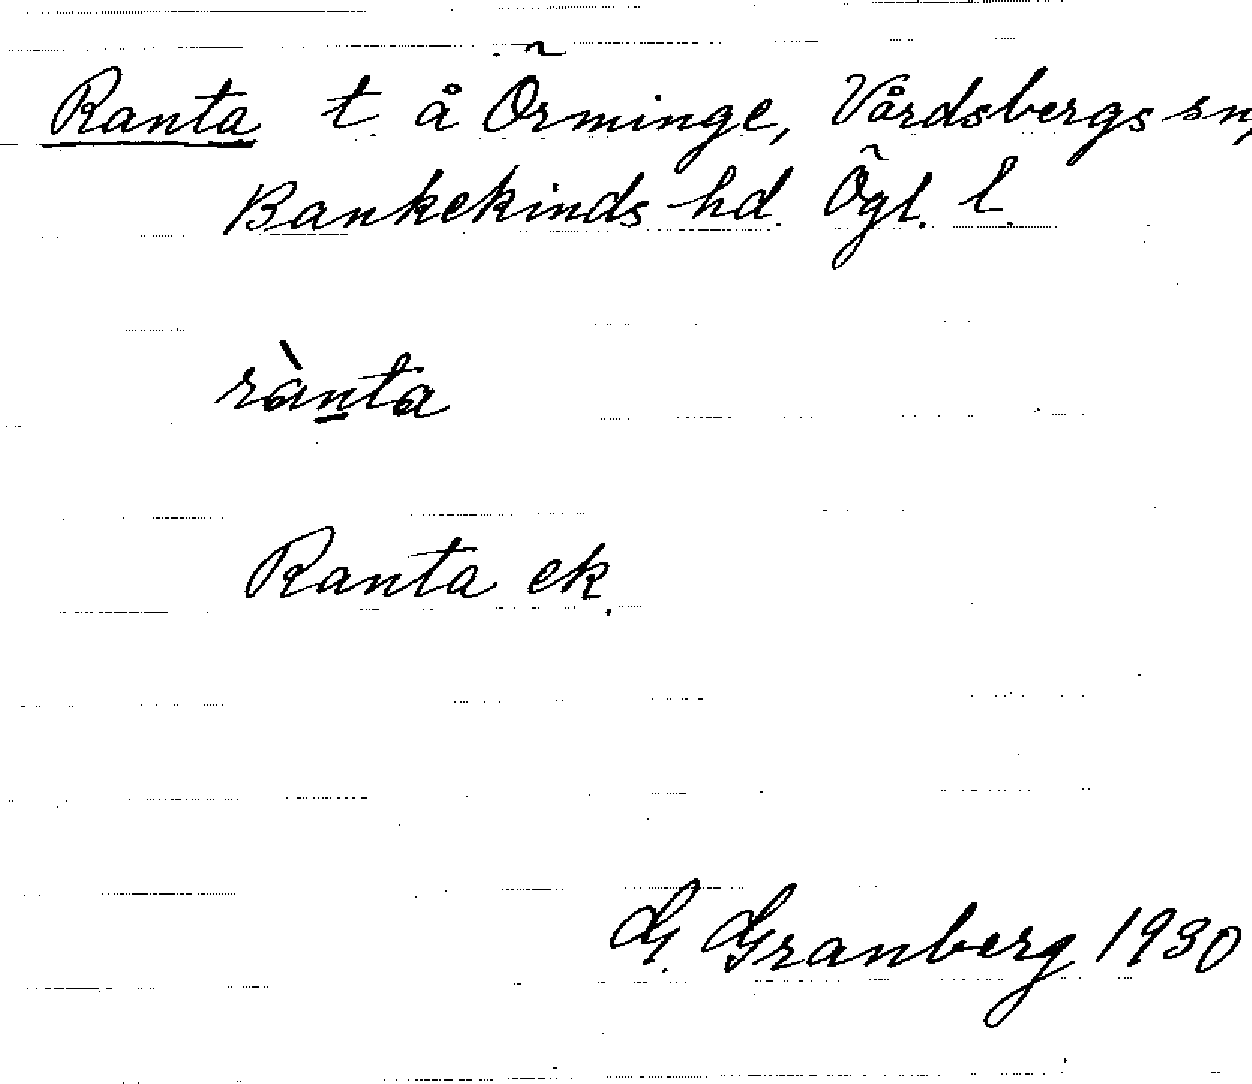 Ranta t å Örminge, Vårdsbergs sn,
Bankekinds hd. Ögl. l.
rànta
Ranta ek.
G. Granberg 1930